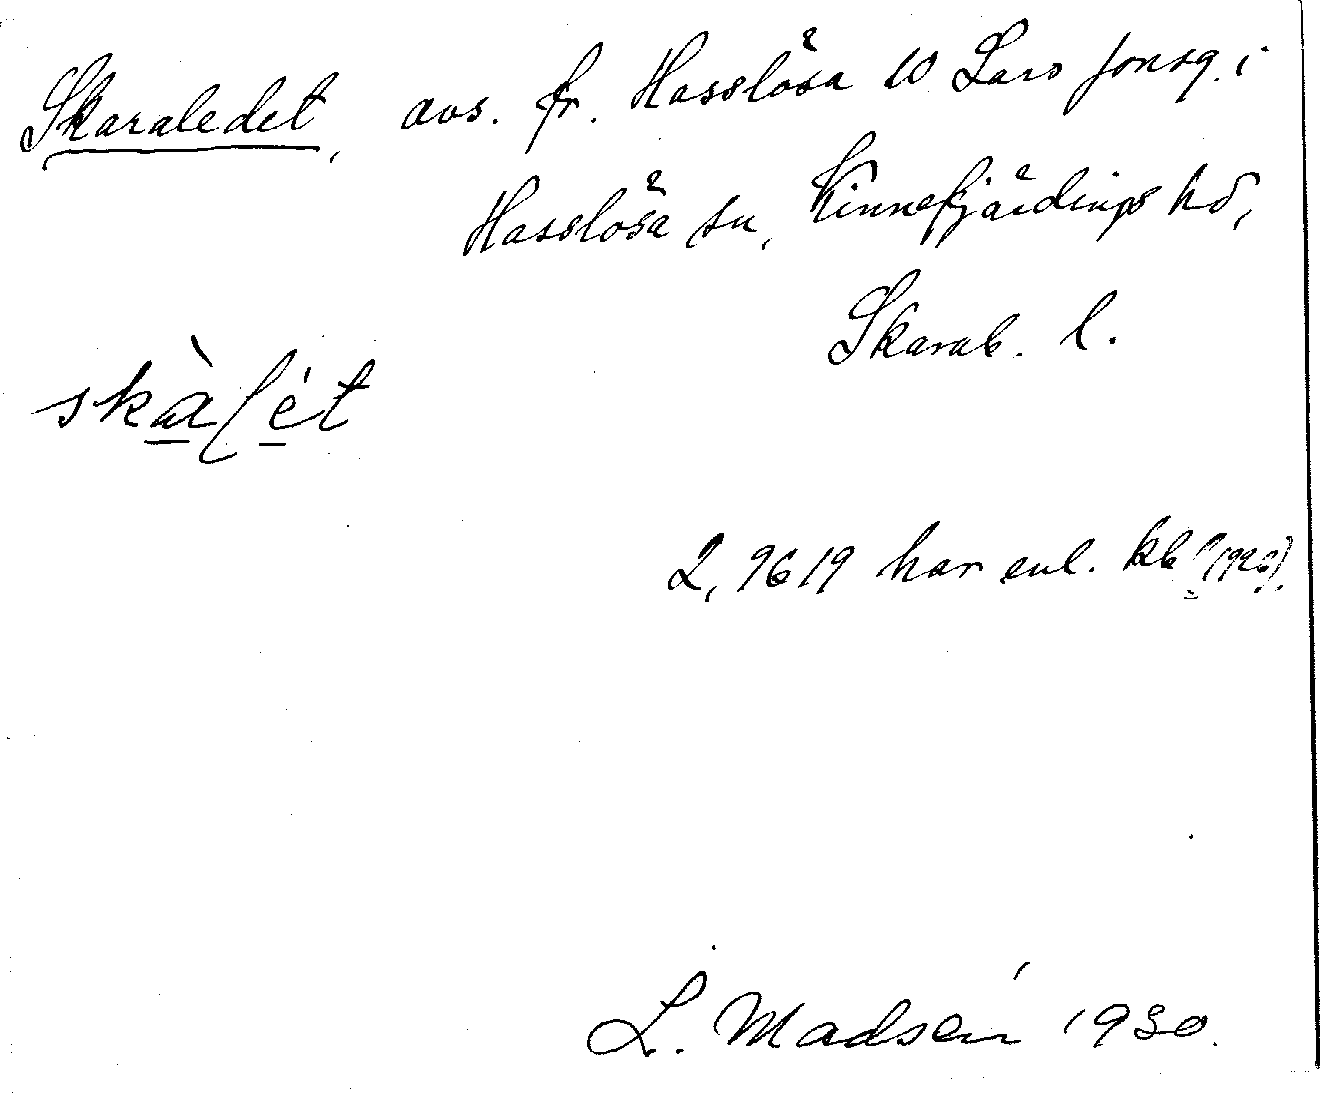 Skaraledet, avs. fr. Hasslösa 10 Lars Jonsg. i
Hasslösa sn, Kinnefjärdings hd,
Skarab. l.
skàlét
2,9619 har enl. kb
L. Madsén 1930.